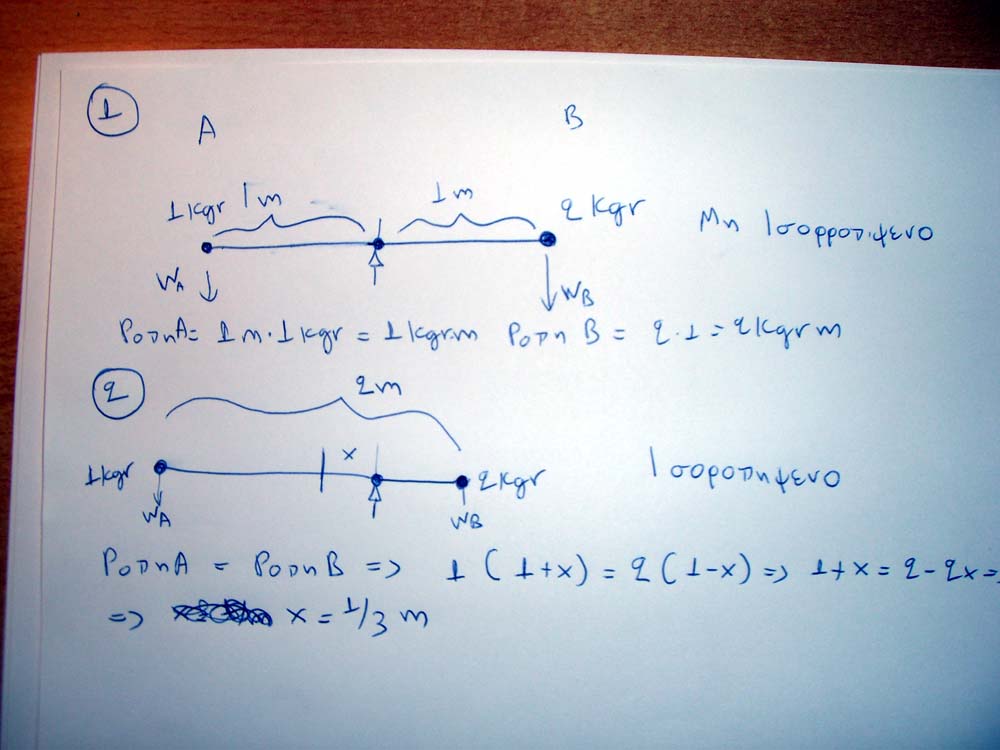 1
A B
1kgr 1m 1m 2kgr Μη Ισορροπημενο
WA WB
Ροπη A = 1m·1kgr = 1kgr·m Ροπη B = 2·1 = 2kgr m
2
2m
1kgr x 2kgr Ισοροπημενο
WA WB
Ροπη A = Ροπη B => 1(1+x) = 2(1-x) => 1+x = 2-2x =>
=> x = 1/3 m